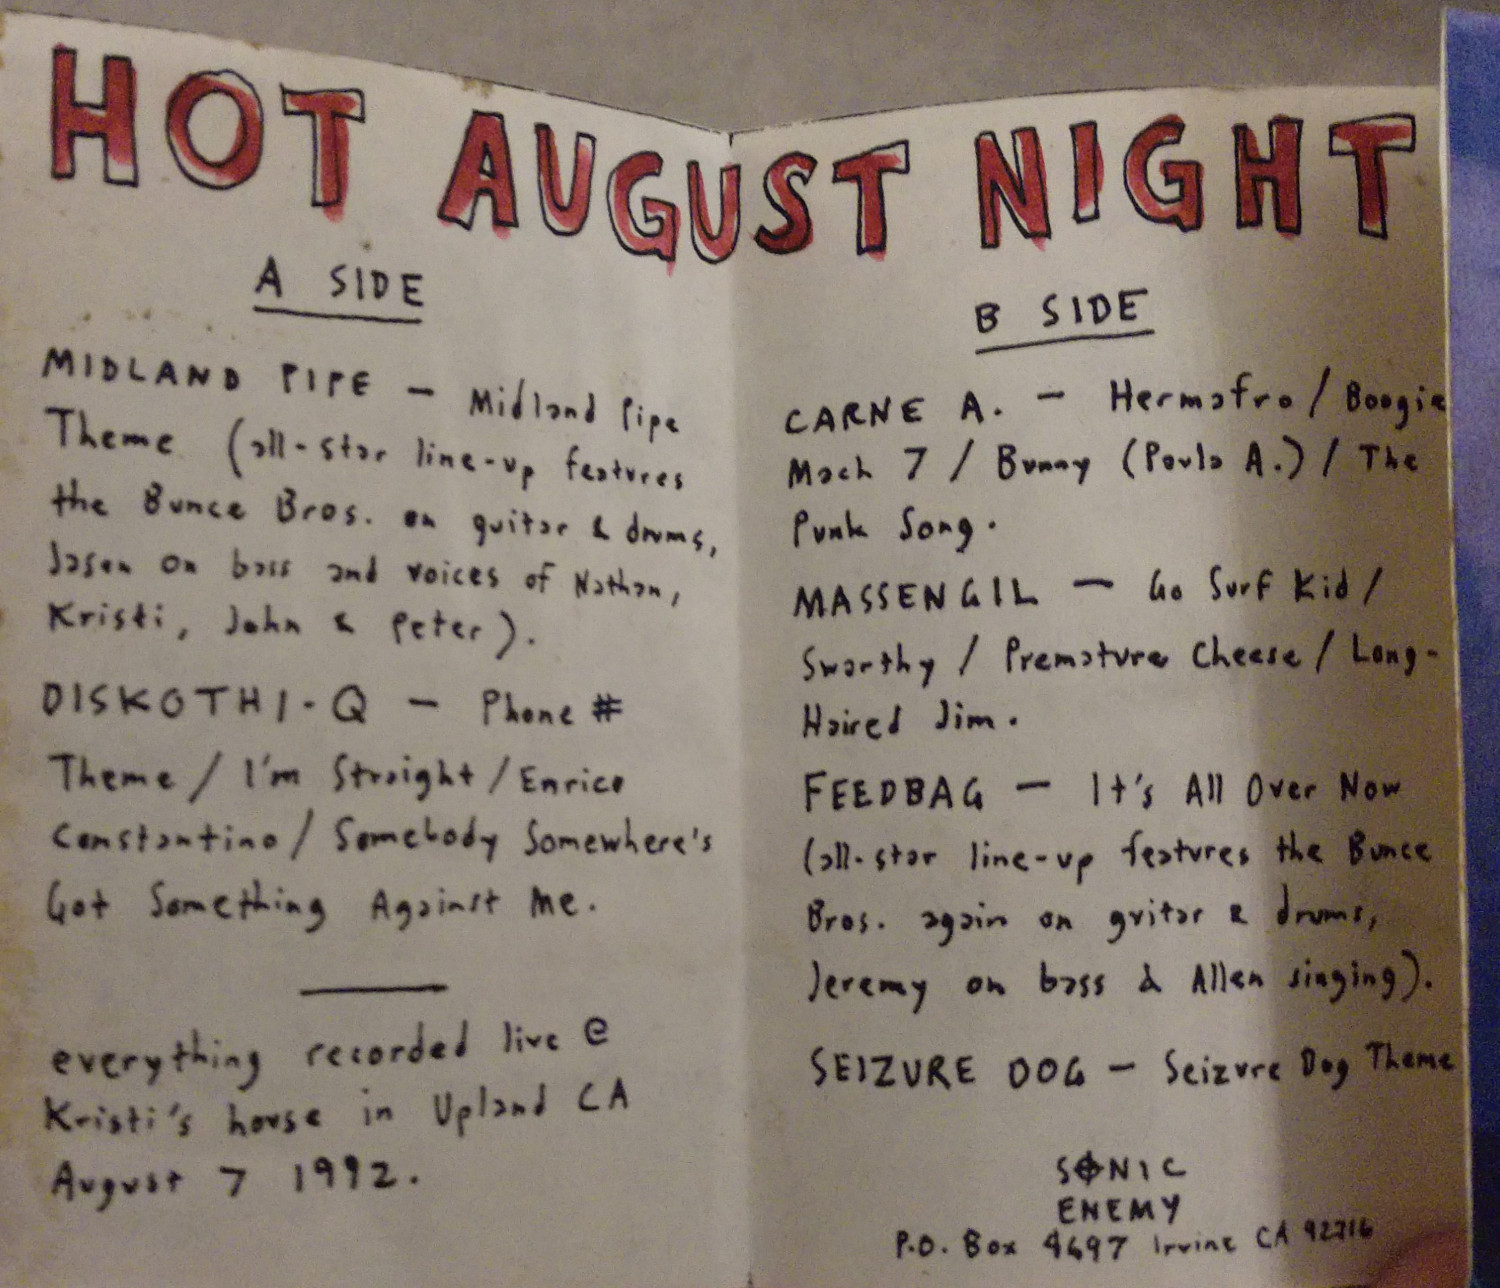 HOT AUGUST NIGHT
A SIDE
MIDLAND PIPE — Midland Pipe
Theme (all-star line-up features
the Bunce Bros. on guitar & drums,
Jason on bass and voices of Nathan,
Kristi, John & Peter).
DISKOTHI-Q — Phone #
Theme / I'm Straight / Enrico
Constantino / Somebody Somewhere's
Got Something Against Me.
everything recorded live @
Kristi's house in Upland CA
August 7 1992.
B SIDE
CARNE A. — Hermafro / Boogie
Mach 7 / Bunny (Paula A.) / The
Punk Song.
MASSENGIL — Go Surf Kid /
Swarthy / Premature Cheese / Long-
Haired Jim.
FEEDBAG — It's All Over Now
(all-star line-up features the Bunce
Bros. again on guitar & drums,
Jeremy on bass & Allen singing).
SEIZURE DOG — Seizure Dog Theme
SONIC
ENEMY
P.O. Box 4697 Irvine CA 92716